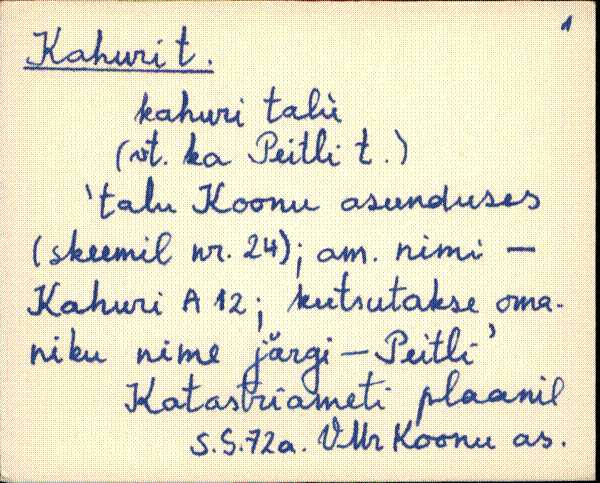 1
Kahuri t.
kahuri talù
(vt. ka Peitli t.)
'talu Koonu asunduses
(skeemil nr. 24); am. nimi —
Kahuri A 12; kutsutakse oma-
niku nime järgi — Peitli'
Katastriameti plaanil
S.S.72a. VMr Koonu as.